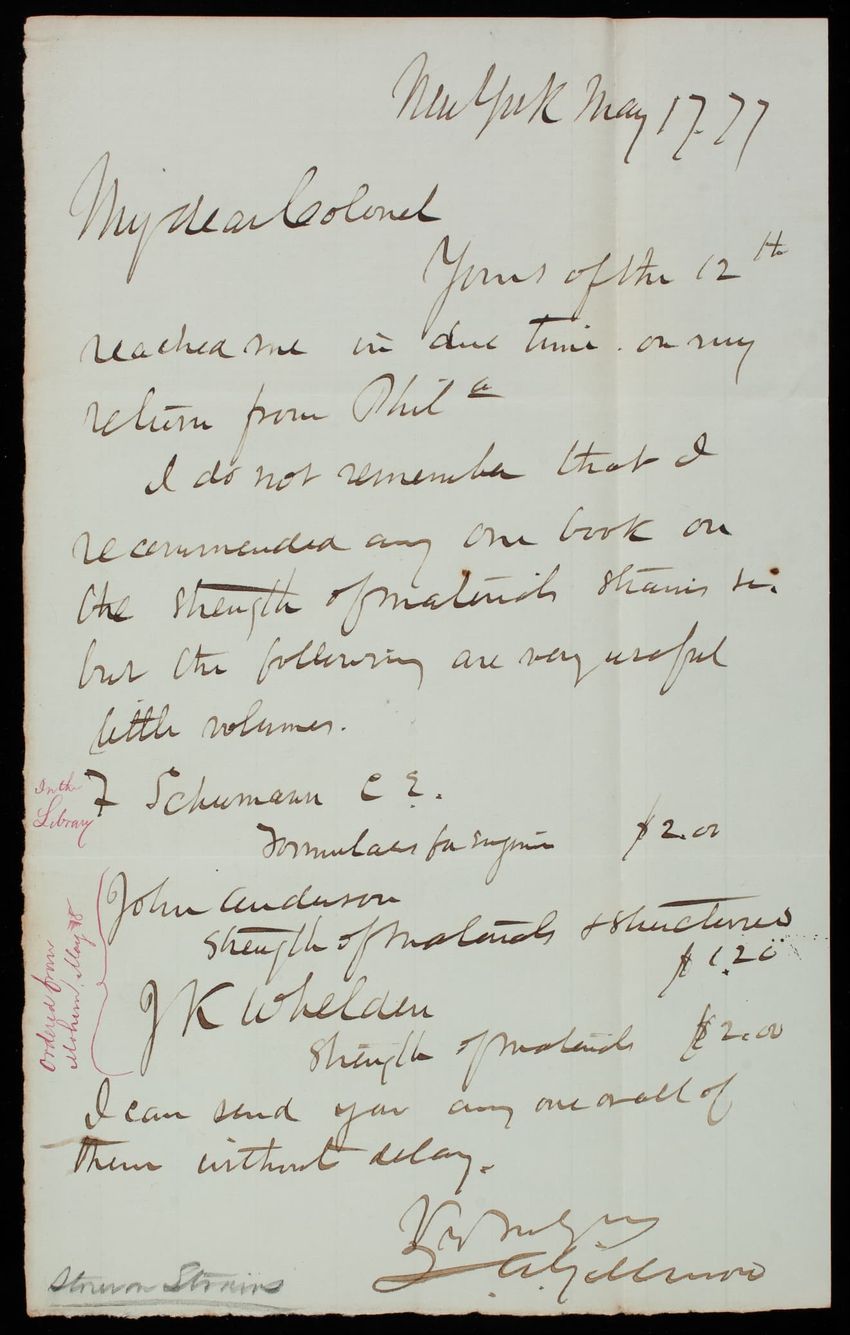 New York May 17. 77
My dear Colonel
Yours of the 12th
reached me in due time. on my
return from Phila
I do not remember that I
recommended any one book on
the strength of materials strains &c.
but the following are very useful
little volumes.
In the
Library
F Schumann C E.
Formulaes for Engine $2.00
John Anderson
Strength of materials & structures
$1.20
J K Whelden
Strength of materials $2.00
Ordered from
May 18
I can send you any one or all of
them without delay.
Very truly yours
Q. A. Gillmore
Stoney on Strains